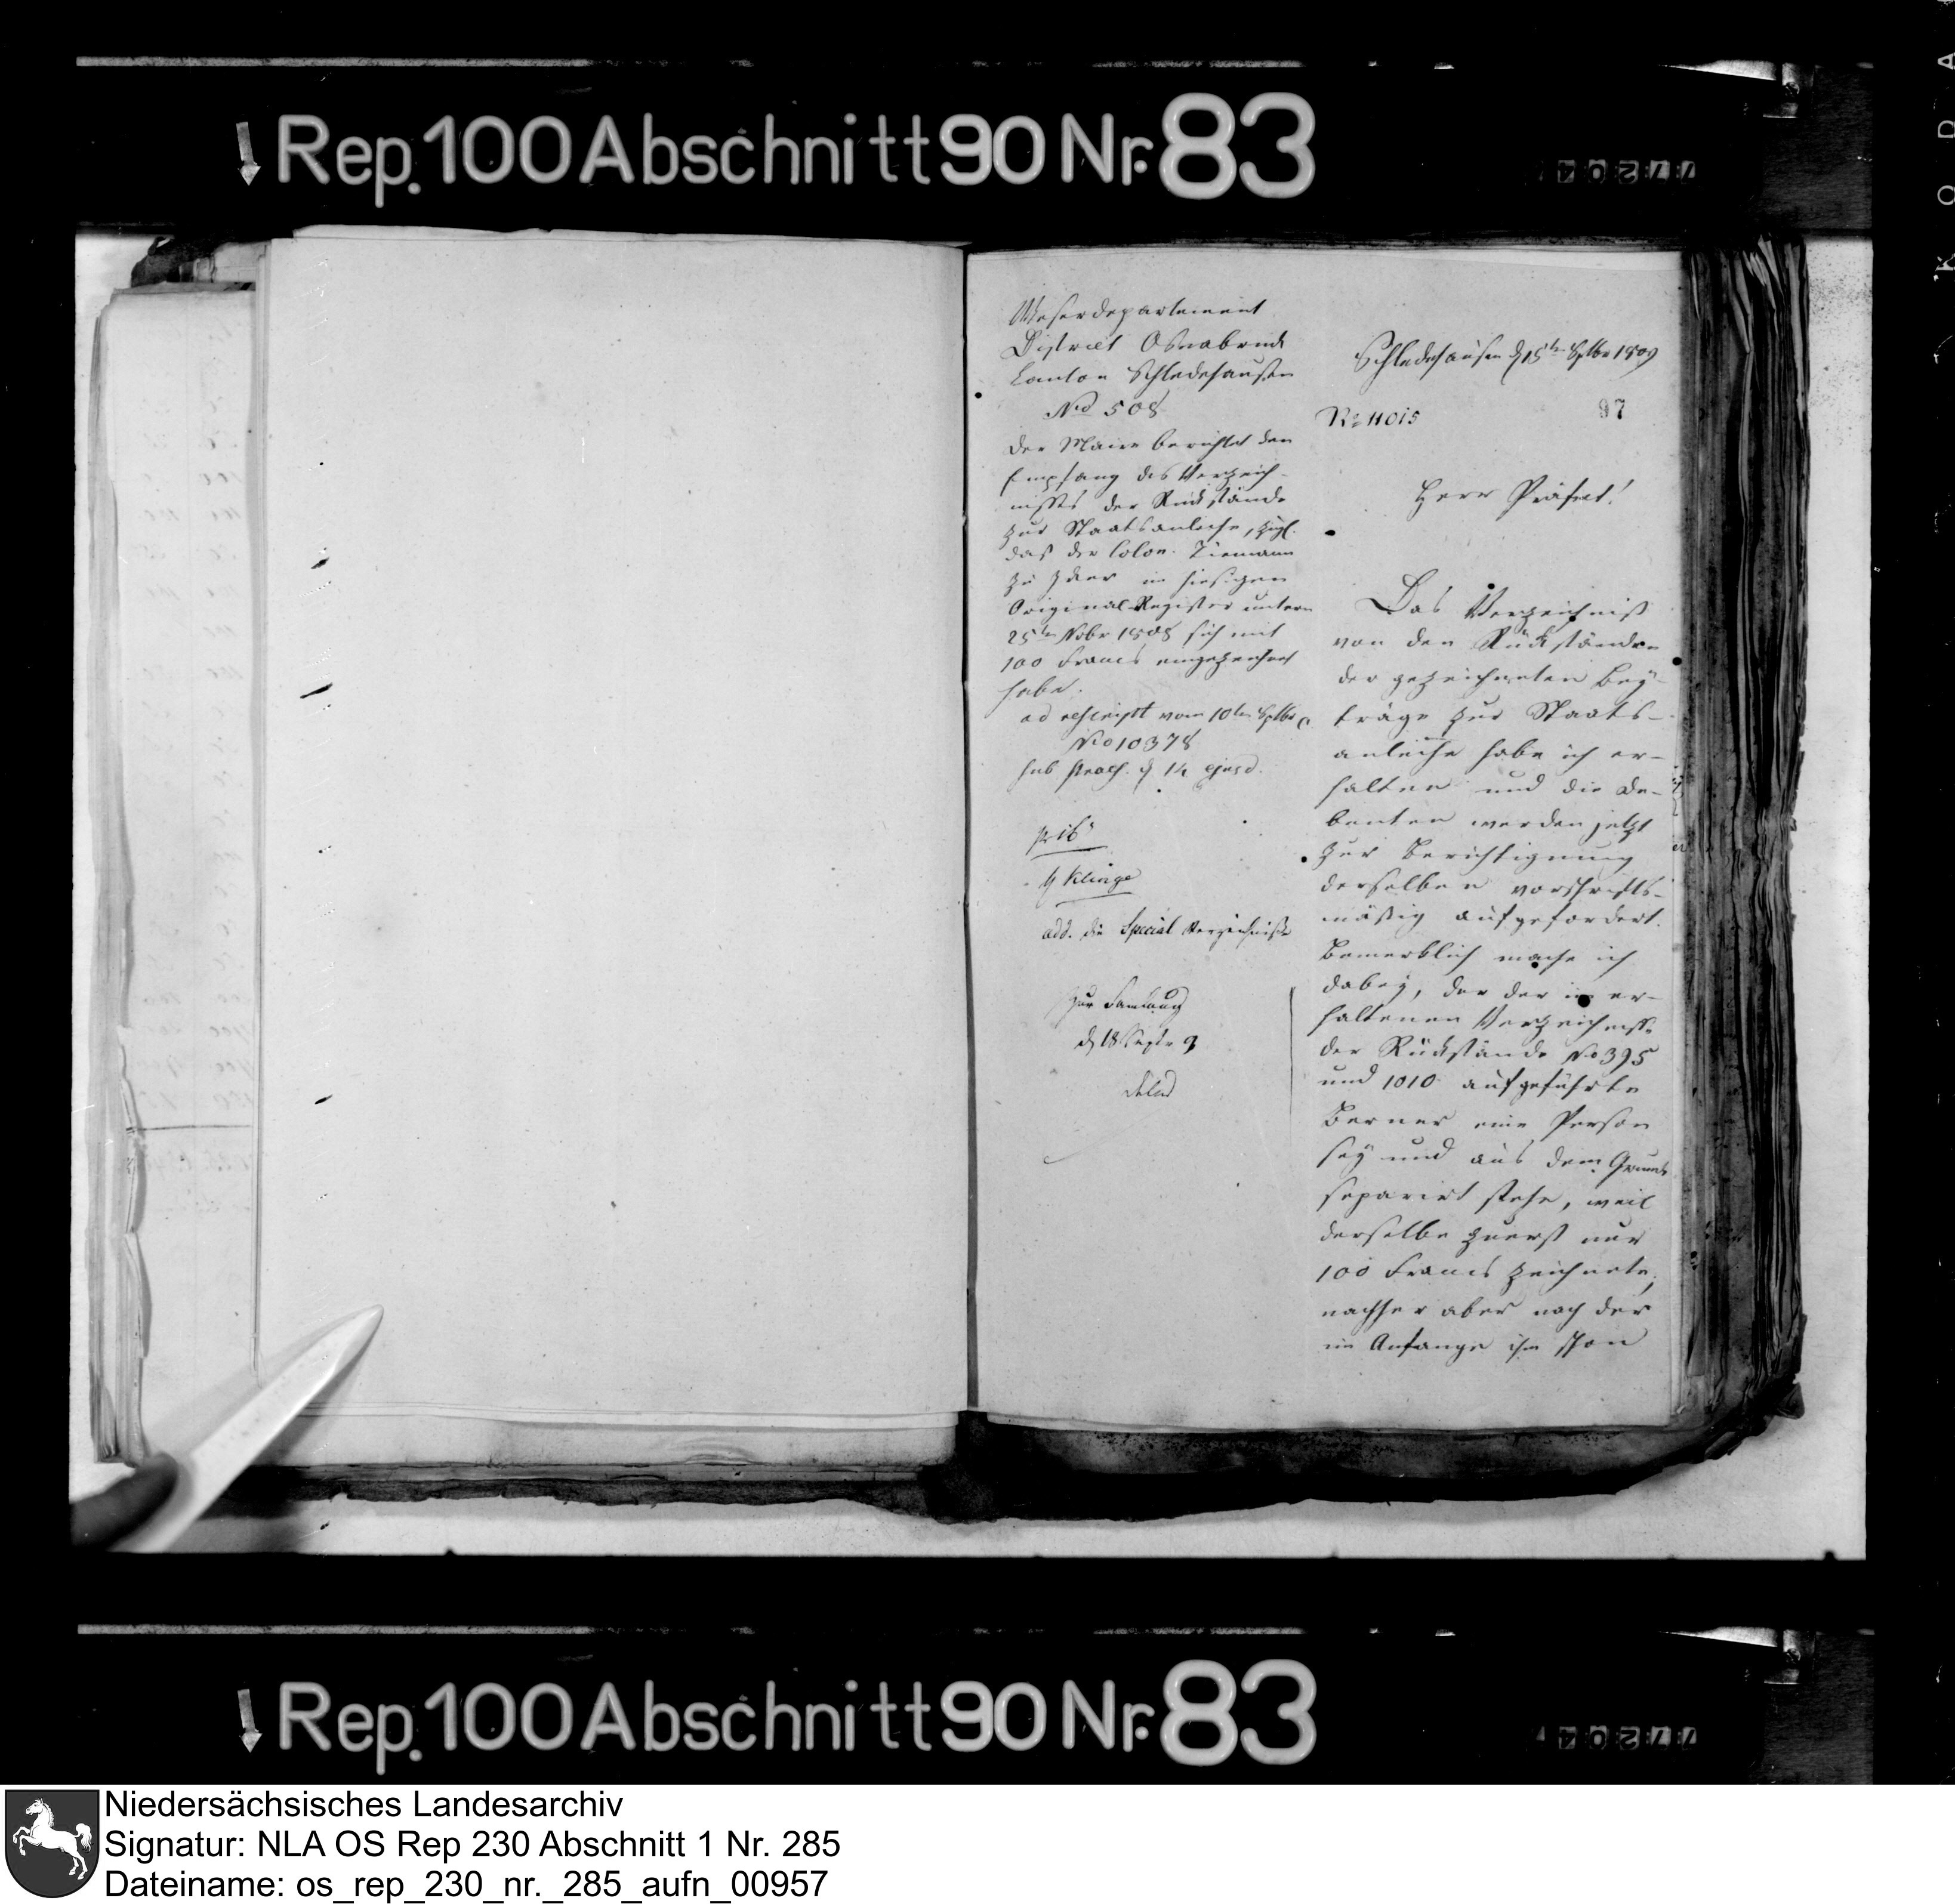 Rep. 100 Abschnitt 90 Nr. 83
Weserdepartement
District Osnabrück
Canton Schledehausen
No 508
Der Maire berichtet den
Empfang des Verzeich-
nisses der Rückstände
zur Staatsanleihe, zugl.
daß der Colon. Tiemann
zu Jeker im hiesigen
Original Register unterm
25ten Nobr 1808 sich mit
100 Francs eingezeichnet
habe.
ad rescript vom 10ten Septbr c.
No 10378
sub praes. d 14 ejusd.
pr 16
Klinge
add. die Special Verzeichniße
Zur Samlung
d 18 Septr 9
Schledehausen d 15ten Septbr 1809
No 11015
97
Herr Präfect!
Das Verzeichniß
von den Rückständen
der gezeichneten Bey-
träge zur Staats-
anleihe habe ich er-
halten und die De-
benten werden jetzt
zur Berichtigung
derselben vorschrifts-
mäßig aufgefordert.
Bemerklich mache ich
dabey, der der im er-
haltenen Verzeichnisse
der Rückstände No 395
und 1010 aufgeführte
Berner eine Person
sey und aus dem Grunde
separirt stehe, weil
derselbe zuerst nur
100 Francs zeichnete,
nachher aber nach der
im Anfange ihm schon
Rep. 100 Abschnitt 90 Nr. 83
Niedersächsisches Landesarchiv
Signatur: NLA OS Rep 230 Abschnitt 1 Nr. 285
Dateiname: os_rep_230_nr._285_aufn_00957